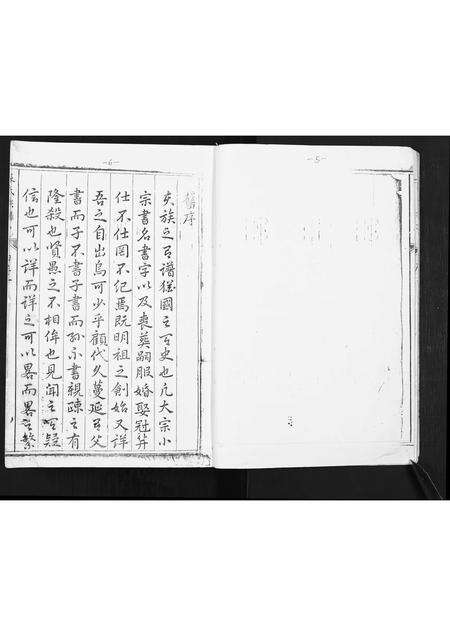 -5-
-6-
舊序
夫族之有譜猶國之有史也凡大宗小
宗書名書字以及喪葬嗣服婚娶冠笄
仕不仕罔不紀焉既明祖之創始又詳
吾之自出烏可少乎顧代久蔓延有父
書而子不書子書而孫不書親疎之有
隆殺也賢愚之不相侔也見聞之有疑
信也可以詳而詳之可以畧而畧之繁